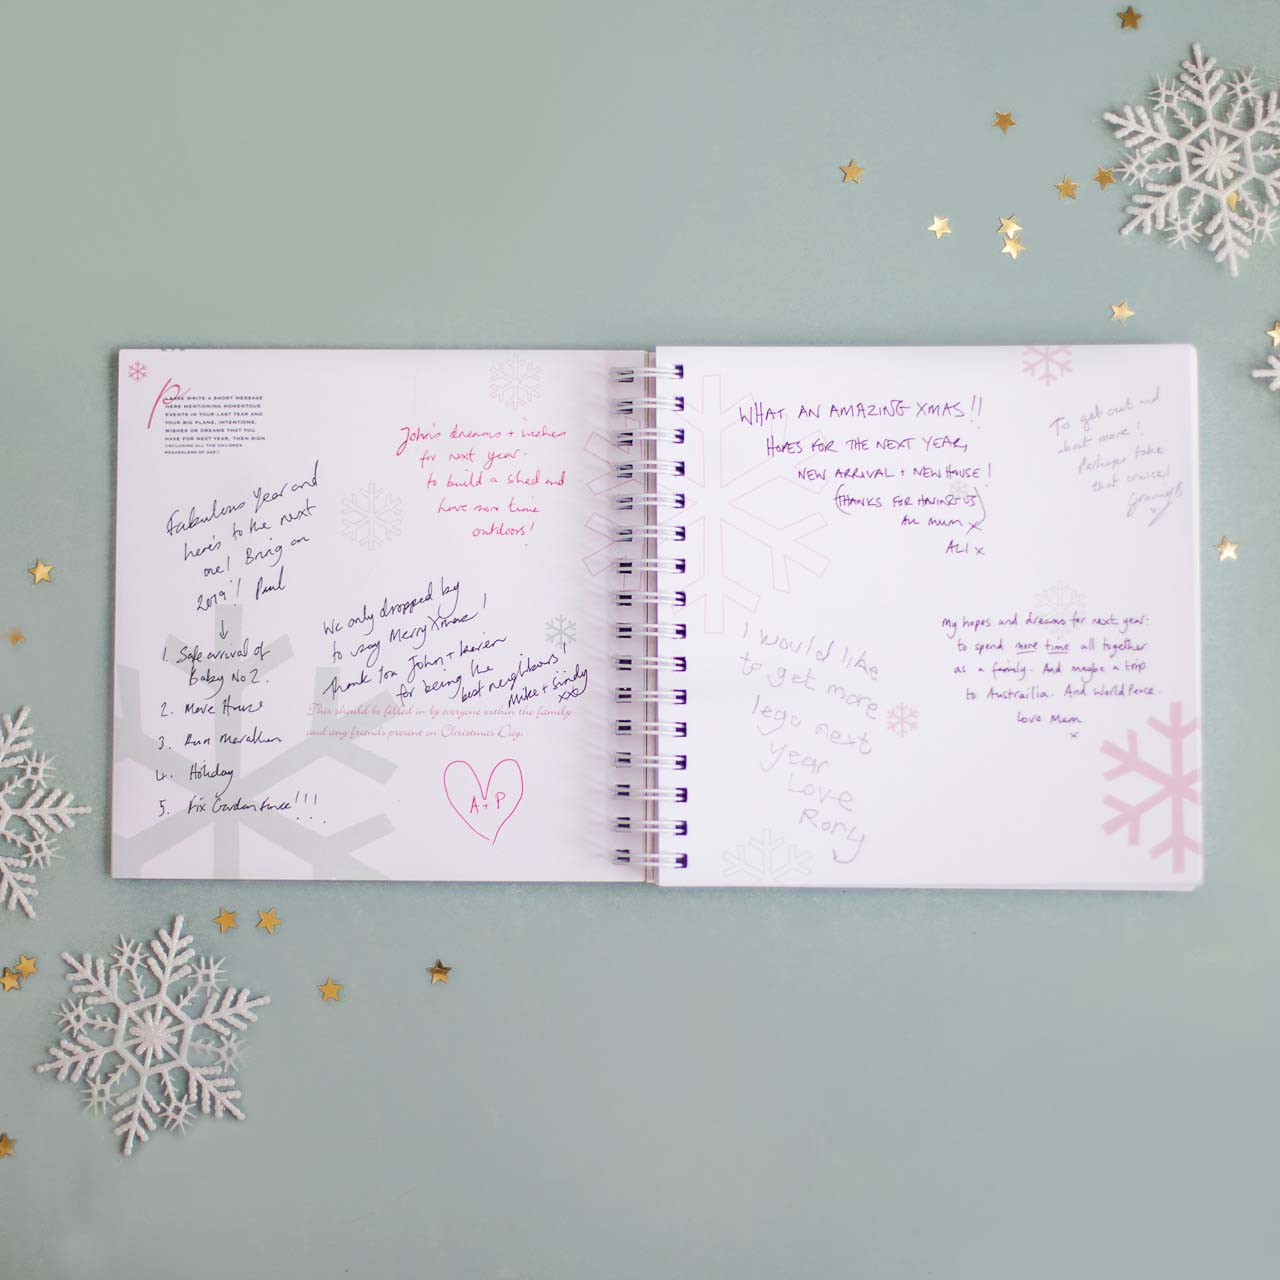 PLEASE WRITE A SHORT MESSAGE
HERE MENTIONING MOMENTOUS
EVENTS IN YOUR LAST YEAR AND
YOUR BIG PLANS, INTENTIONS,
WISHES OR DREAMS THAT YOU
HAVE FOR NEXT YEAR, THEN SIGN
(INCLUDING ALL THE CHILDREN
REGARDLESS OF AGE!)
John's dreams + wishes
for next year.
to build a shed and
have more time
outdoors!
Fabulous Year and
here's to the next
one! Bring on
2019! Paul
1. Safe arrival of
Baby No 2.
2. Move House
3. Run Marathon
4. Holiday
5. Fix Garden Fence!!!
We only dropped by
to say Merry Xmas!
Thank you John + Karen
for being the
best neighbours!
Mike + Sindy
xxx
This should be filled in by everyone within the family
and any friends present on Christmas Day.
A + P
WHAT AN AMAZING XMAS!!
HOPES FOR THE NEXT YEAR,
NEW ARRIVAL + NEW HOUSE!
(THANKS FOR HAVING US)
MUM x
ALI x
To get out and
about more!
Perhaps take
that cruise!
I would like
to get more
lego next
year
Love
Rory
My hopes and dreams for next year:
to spend more time all together
as a family. And maybe a trip
to Austrailia. And World Peace.
Love Mum
x